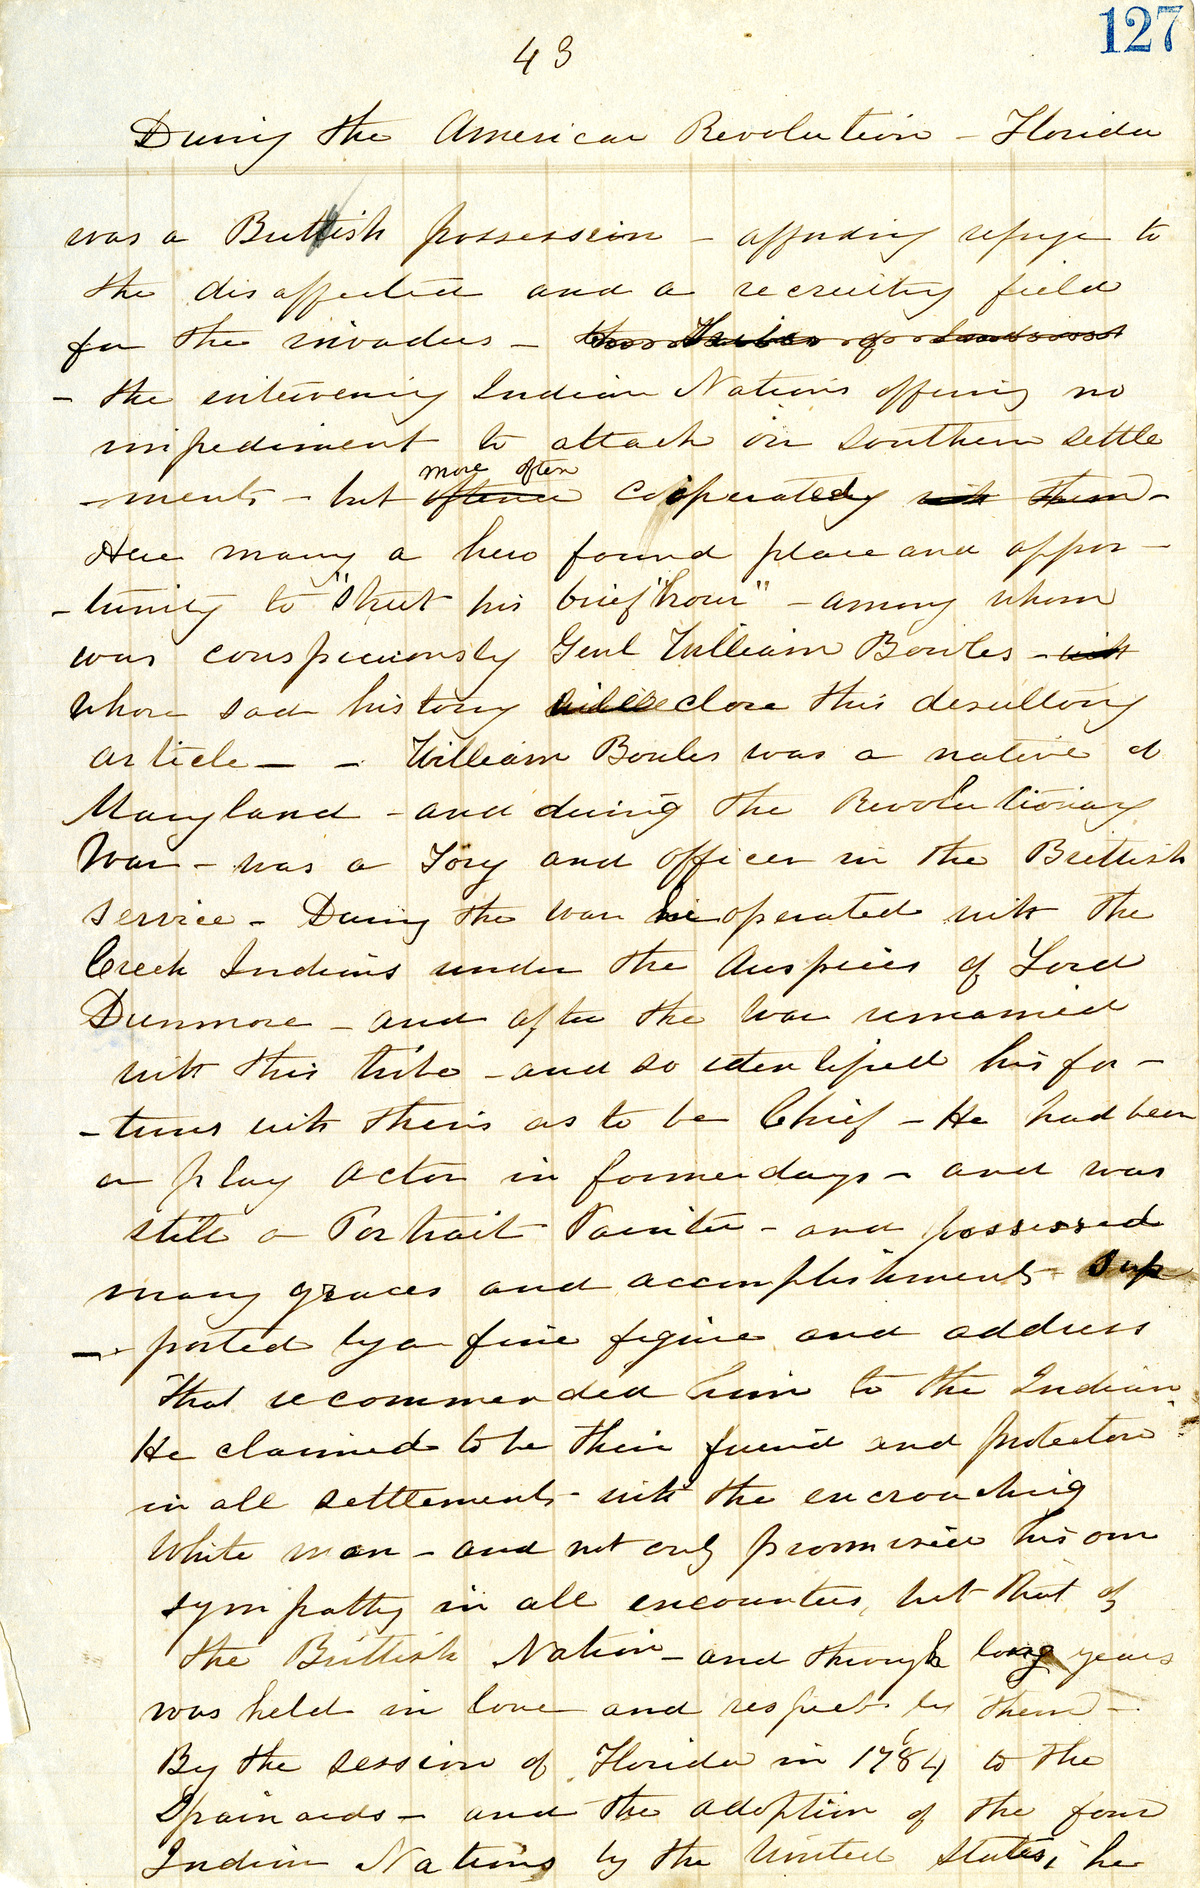 127
43
During the American Revolution – Florida
was a Buttish possession – affording refuge to
the disaffected and a recruiting field
for the invaders – the Tribes of
– the intervening Indian Nations offering no
impediment to attack on Southern settle
more often
–ments – but oftener cooperatedy with them –
Here many a hero found place and oppor–
–tunity to "strut his brief "hour" – among whom
was conspicuously Genl William Bowles – with
whose sad history will close this desultory
article – – William Bowles was a native of
Maryland – and during the Revolutionary
War – was a Tory and officer in the Brittish
service – During the war he operated with the
Creek Indians under the Auspices of Lord
Dunmore – and after the War remained
with this tribe – and so identified his for–
–tunes with theirs as to be Chief – He had been
a play actor in former days – and was
still a Portrait Painter – and possessed
many graces and accomplishments Sup
–ported by a fine figure and address
that recommended him to the Indian
He claimed to be their friend and protector
in all settlements – with the encroaching
White man – and not only promised his own
sympathy in all encounters, but that of
the Brittish Nation – and through long years
was held in love and respect by them –
By the session of Florida in 1784 to the
Spainards – and the adoption of the four
Indian Nations by the United States, he